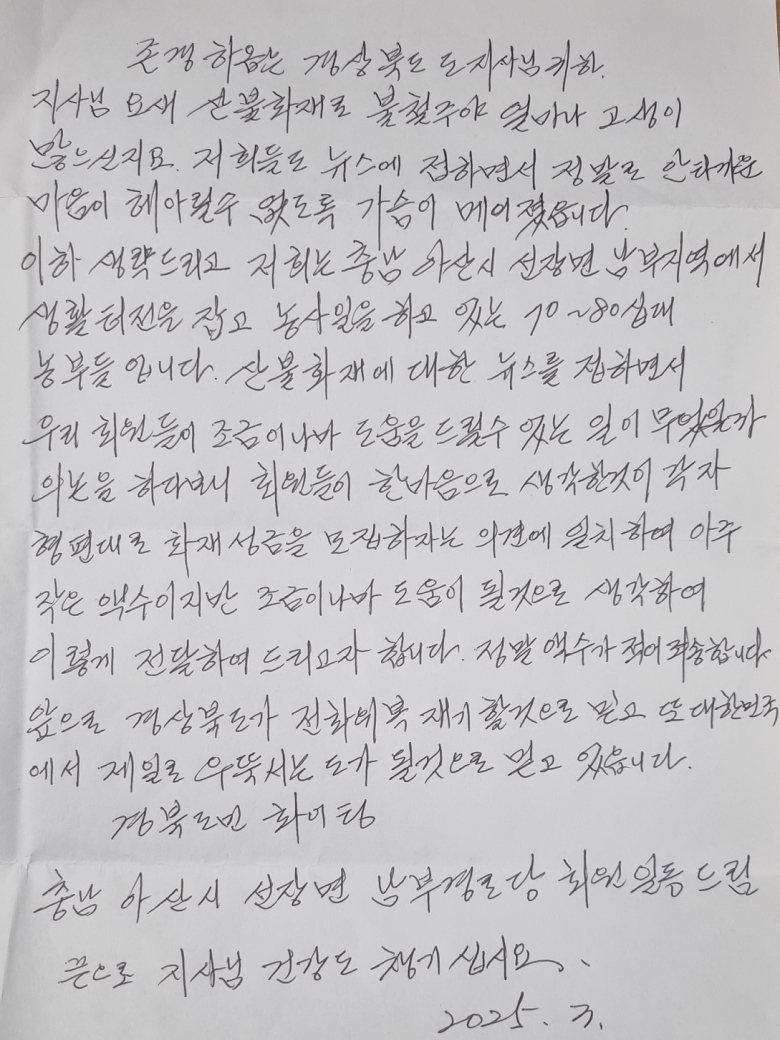 존경하옵는 경상북도 도지사님귀하.
지사님 요새 산불화재로 불철주야 얼마나 고생이
많으신지요. 저희들도 뉴스에 접하면서 정말로 안타까운
마음이 헤아릴수 없도록 가슴이 메어졌읍니다.
이하 생략드리고 저희는 충남 아산시 선장면 남부지역에서
생활터전을 잡고 농사일을 하고 있는 70~80십대
농부들 입니다. 산불화재에 대한 뉴스를 접하면서
우리 회원들이 조금이나마 도움을 드릴수 있는 일이 무엇일까
의논을 하다보니 회원들이 한마음으로 생각한것이 각자
형편대로 화재성금을 모집하자는 의견에 일치하여 아주
작은 액수이지만 조금이나마 도움이 될것으로 생각하여
이렇게 전달하여 드리고자 합니다. 정말 액수가 적어 죄송합니다
앞으로 경상북도가 전화위복 재기할것으로 믿고 또 대한민국
에서 제일로 우뚝서는 도가 될것으로 믿고 있읍니다.
경북도민 화이팅
충남 아산시 선장면 남부경로당 회원일동 드림
끝으로 지사님 건강도 챙기십시요.
2025. 3.